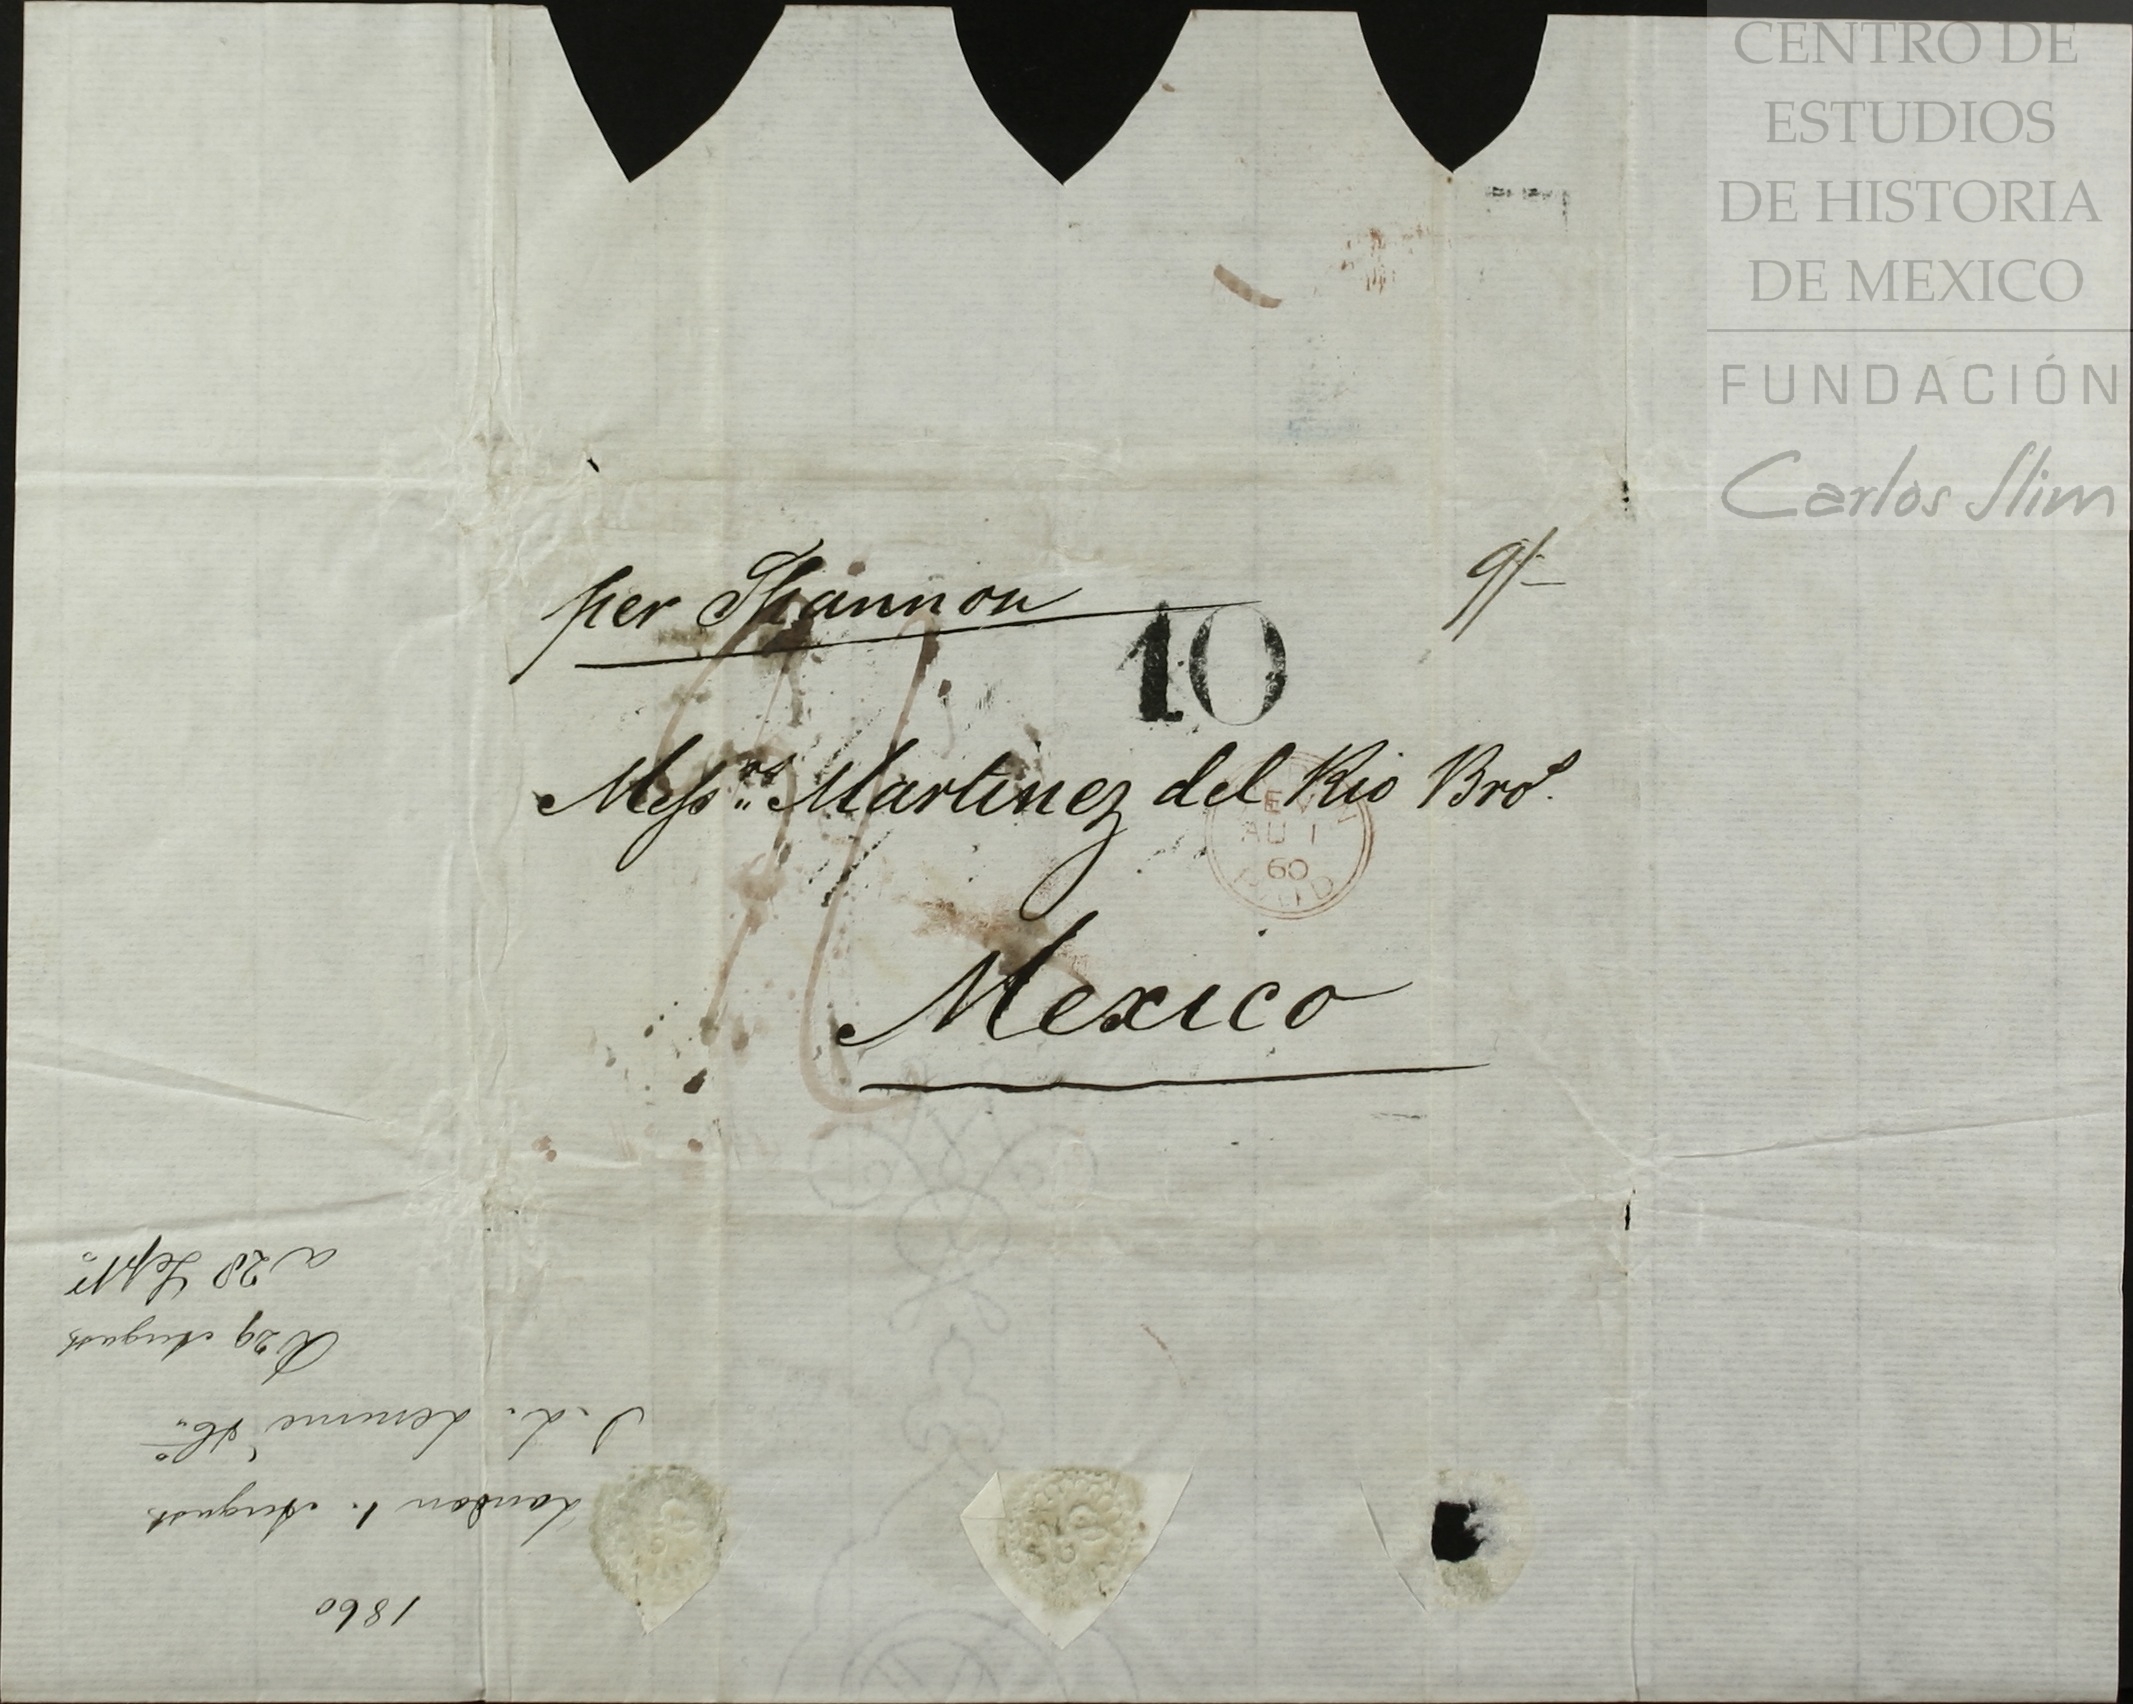 CENTRO DE
ESTUDIOS
DE HISTORIA
DE MEXICO
FUNDACIÓN
Carlos Slim
per Shannon
9/-
10
Messrs Martinez del Rio Bros.
EV
AU 1
60
PAID
Mexico
1860
London 1. August
J. L. Lemme & Co.
R 29 August
a 28 Septr.